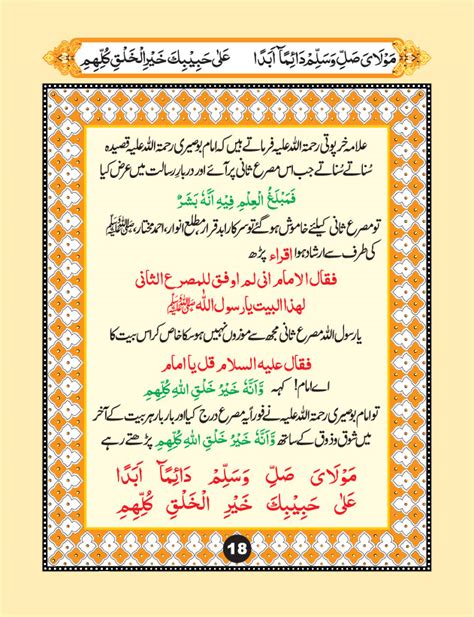 مَوْلَاىَ صَلِّ وَسَلِّمْ دَائِمًا اَبَدًا عَلٰى حَبِيْبِكَ خَيْرِ الْخَلْقِ كُلِّهِمِ
علامہ خرپوتی رحمۃ اللہ علیہ فرماتے ہیں کہ امام بوصیری رحمۃ اللہ علیہ قصیدہ
سُناتے سُناتے جب اس مصرع ثانی پر آئے اور دربارِ رسالت میں عرض کیا
فَمَبْلَغُ الْعِلْمِ فِيْهِ اَنَّهٗ بَشَرٌ
تو مصرع ثانی کیلئے خاموش ہوگئے تو سرکار ابد قرار، مطلع انوار، احمد مختار، ﷺ
کی طرف سے ارشاد ہوا اقراء پڑھ
فقال الامام انی لم اوفق للمصرع الثانی
لهذا البیت یا رسول اللہ ﷺ
یا رسول اللہ مصرع ثانی مجھ سے موزوں نہیں ہوسکا خاص کر اس بیت کا
فقال علیہ السلام قل یا امام
اے امام! کہہ وَاَنَّهٗ خَيْرُ خَلْقِ اللهِ كُلِّهِمِ
تو امام بوصیری رحمۃ اللہ علیہ نے فوراً یہ مصرع درج کیا اور بار بار ہر بیت کے آخر
میں شوق و ذوق کے ساتھ وَاَنَّهٗ خَيْرُ خَلْقِ اللهِ كُلِّهِمِ پڑھتے رہے
مَوْلَاىَ صَلِّ وَسَلِّمْ دَائِمًا اَبَدًا
عَلٰى حَبِيْبِكَ خَيْرِ الْخَلْقِ كُلِّهِمِ
18